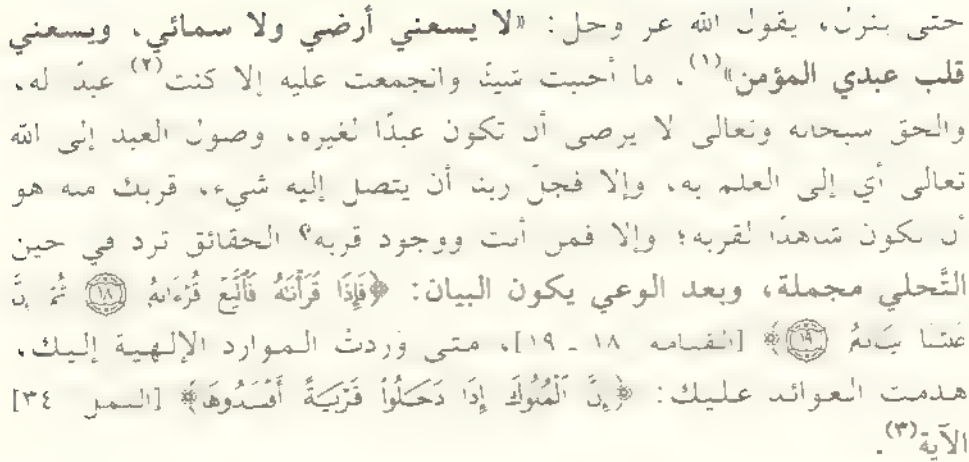 حتى ينزل، يقول الله عز وجل: «لا يسعني أرضي ولا سمائي، ويسعني
قلب عبدي المؤمن»(١). ما أحببت شيئًا وانجمعت عليه إلا كنت(٢) عبدًا له،
والحق سبحانه وتعالى لا يرضى أن تكون عبدًا لغيره، وصول العبد إلى الله
تعالى أي إلى العلم به، وإلا فجلّ ربنا أن يتصل إليه شيء، قربك منه هو
أن تكون شاهدًا لقربه؛ وإلا فمن أنت ووجود قربه؟ الحقائق ترد في حين
التَّجلي مجملة، وبعد الوعي يكون البيان: ﴿فَإِذَا قَرَأْنَاهُ فَاتَّبِعْ قُرْءَانَهُ ١٨ ثُمَّ إِنَّ
عَلَيْنَا بَيَانَهُ ١٩﴾ [القيامه ١٨ - ١٩]، متى وردتْ الموارد الإلهية إليك،
هدمت العوائد عليك: ﴿إِنَّ الْمُلُوكَ إِذَا دَخَلُوا قَرْيَةً أَفْسَدُوهَا﴾ [النمل ٣٤]
الآية(٣).